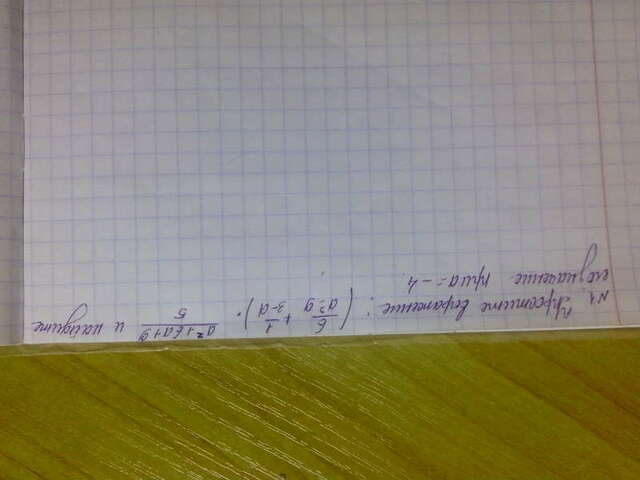 №1.
Упростите выражение: (6/(a²-9) + 1/(3-a)) · (a²+6a+9)/5 и найдите
его значение при a = -4.